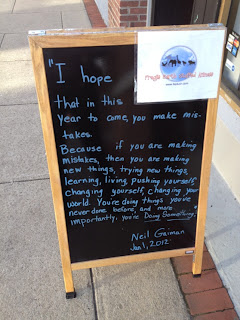 "I hope
that in this
year to come, you make mis-
takes.
Because if you are making
mistakes, then you are making
new things, trying new things,
learning, living, pushing yourself,
changing yourself, changing your
world. You're doing things you've
never done before, and more
importantly, you're Doing Something."
Neil Gaiman
Jan 1, 2012